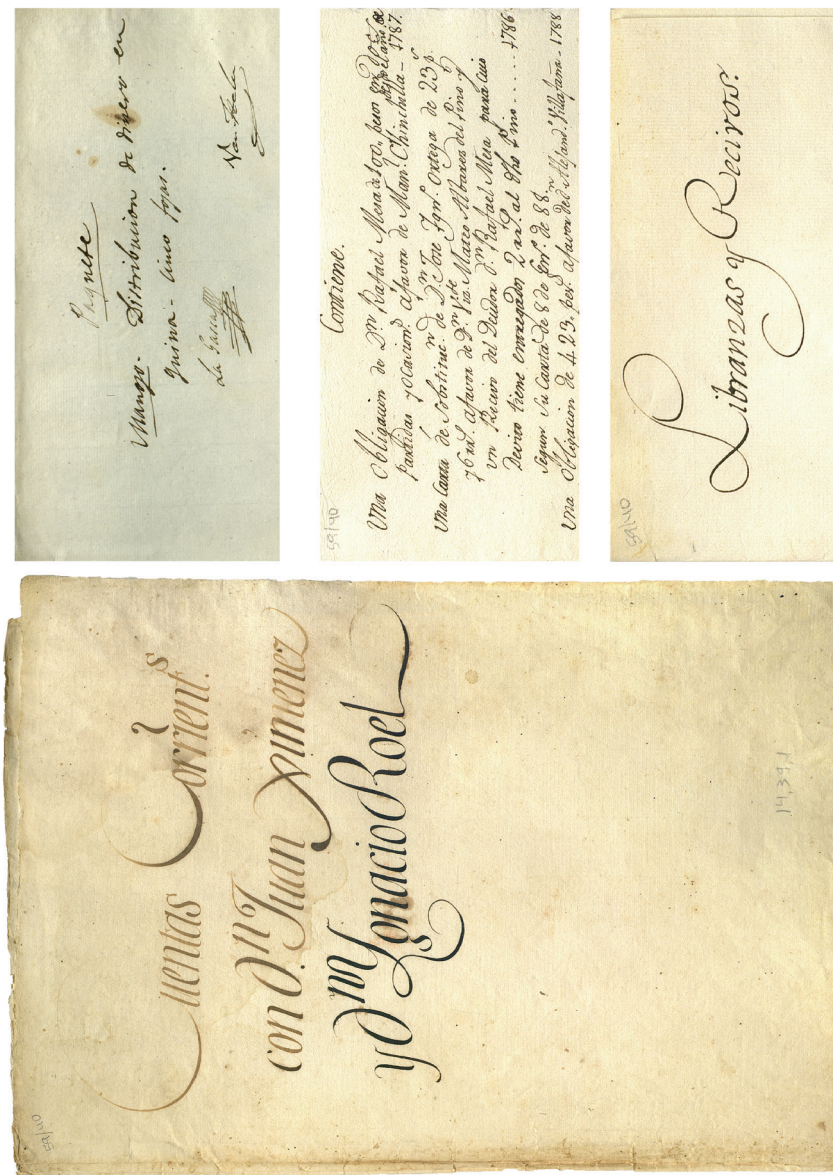 Paquete
Mangos. Distribucion de dinero en
quina - cinco fojas.
La Parra
Contiene.
Una Obligacion de Dn. Rafael Mesa de 100. pesos en dos
partidas y ocasiones afavor de Man.l Chinchilla - 1787.
Una Carta de Sobstituc.n de Dn. Jose Ign.o Ortega de 23 p.s
76 rs. afavor de Dn. Vte.
un Recivo del Deudor Dn. Rafael Mesa para cuio
Devito tiene entregados 2 al dho Pino ...... 1786.
Segun su Carta de 8 de En.o de 88
Una Obligacion de 423. pes.s afavor de dn Alejand.o Villafaña - 1788
59/40
Libranzas y Recivos.
59/40
Cuentas Corrient.s
con D.n Juan Ximenez
y D.n Ygnacio Roel
14,39,1
59/40